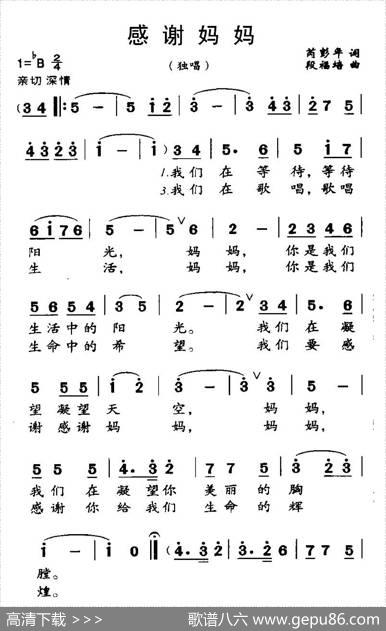 感谢妈妈
1=♭B 2/4
(独唱)
芮彭年 词
段福培 曲
亲切 深情
(3 4 ‖: 5 - | 5 i 2 | 3 · 3 | 2 7 5 |
4 3 2 3 | i - | i -) 3 4 | 5 · 6 | 5 i 7 |
1.我们 在 等 待, 等待
3.我们 在 歌 唱, 歌唱
6 i 7 6 | 5 - | 5 ∨ 6 | 2 - | 2 3 4 6 |
阳 光, 妈 妈, 你是我们
生 活, 妈 妈, 你是我们
5 6 5 4 | 3 5 | 2 - | 2 ∨ 3 4 | 5 · 6 |
生活中的 阳 光。 我们 在 凝
生命中的 希 望。 我们 要 感
5 5 5 | i 2 | 3 - | 3 ∨ 3 | i - |
望 凝望 天 空, 妈 妈,
谢 感谢 妈 妈, 妈 妈,
5 5 5 5 | 4 · 3 2 | 2 7 5 5 | 3 2 3 |
我们在凝望你 美丽的胸
感谢你给我们 生命的辉
i - | i 0 | (4 · 3 2 3 | 2 · 3 2 3 |
膛。
煌。
高清下载 >>>
歌谱八六 www.gepu86.com